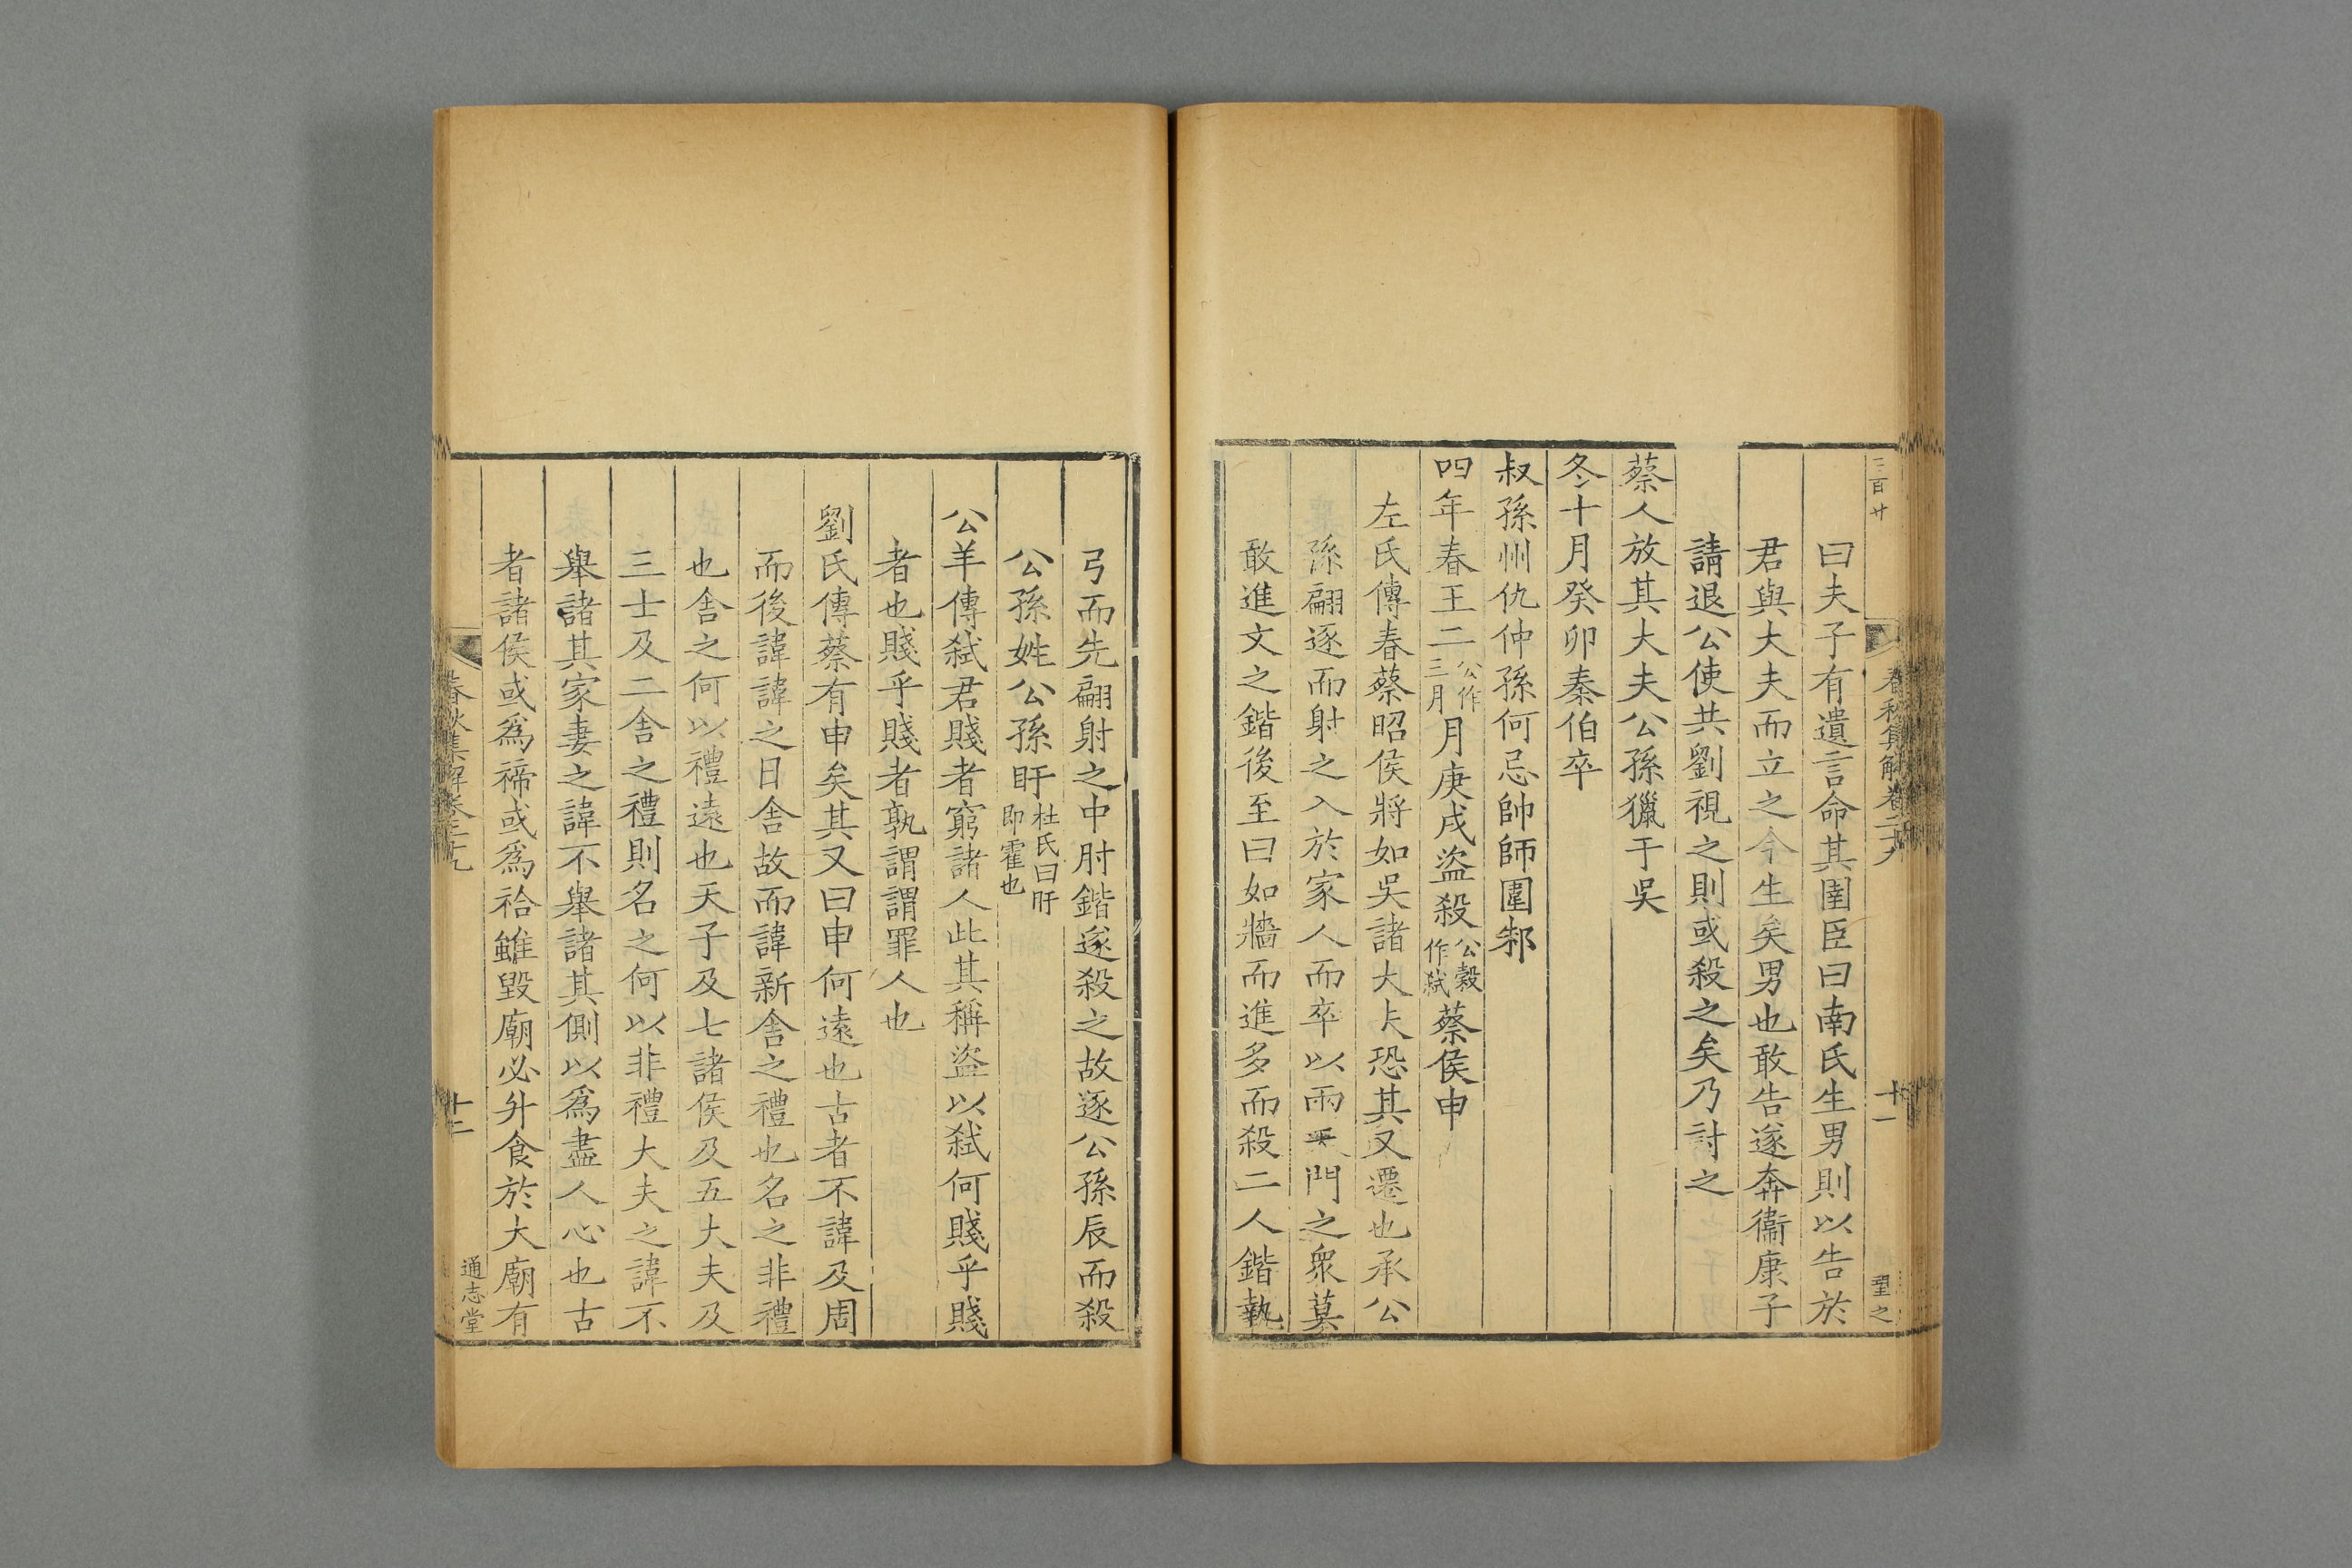 三百廿
春秋集解卷二十九
十一
望之
曰夫子有遺言命其圉臣曰南氏生男則以告於
君與大夫而立之今生矣男也敢告遂奔衞康子
請退公使共劉視之則或殺之矣乃討之
蔡人放其大夫公孫獵于吳
冬十月癸卯秦伯卒
叔孫州仇仲孫何忌帥師圍邾
四年春王二公作三月月庚戌盗殺公穀作弑蔡侯申
左氏傳春蔡昭侯將如吳諸大夫恐其又遷也承公
孫翩逐而射之入於家人而卒以兩矢門之衆莫
敢進文之鍇後至曰如牆而進多而殺二人鍇執
弓而先翩射之中肘鍇遂殺之故逐公孫辰而殺
公孫姓公孫盱杜氏曰盱即霍也
公羊傳弑君賤者窮諸人此其稱盗以弑何賤乎賤
者也賤乎賤者孰謂謂罪人也
劉氏傳蔡有申矣其又曰申何遠也古者不諱及周
而後諱諱之日舍故而諱新舍之禮也名之非禮
也舍之何以禮遠也天子及七諸侯及五大夫及
三士及二舍之禮則名之何以非禮大夫之諱不
舉諸其家妻之諱不舉諸其側以爲盡人心也古
者諸侯或爲禘或爲祫雖毀廟必升食於大廟有
春秋集解卷二十九
十二
通志堂